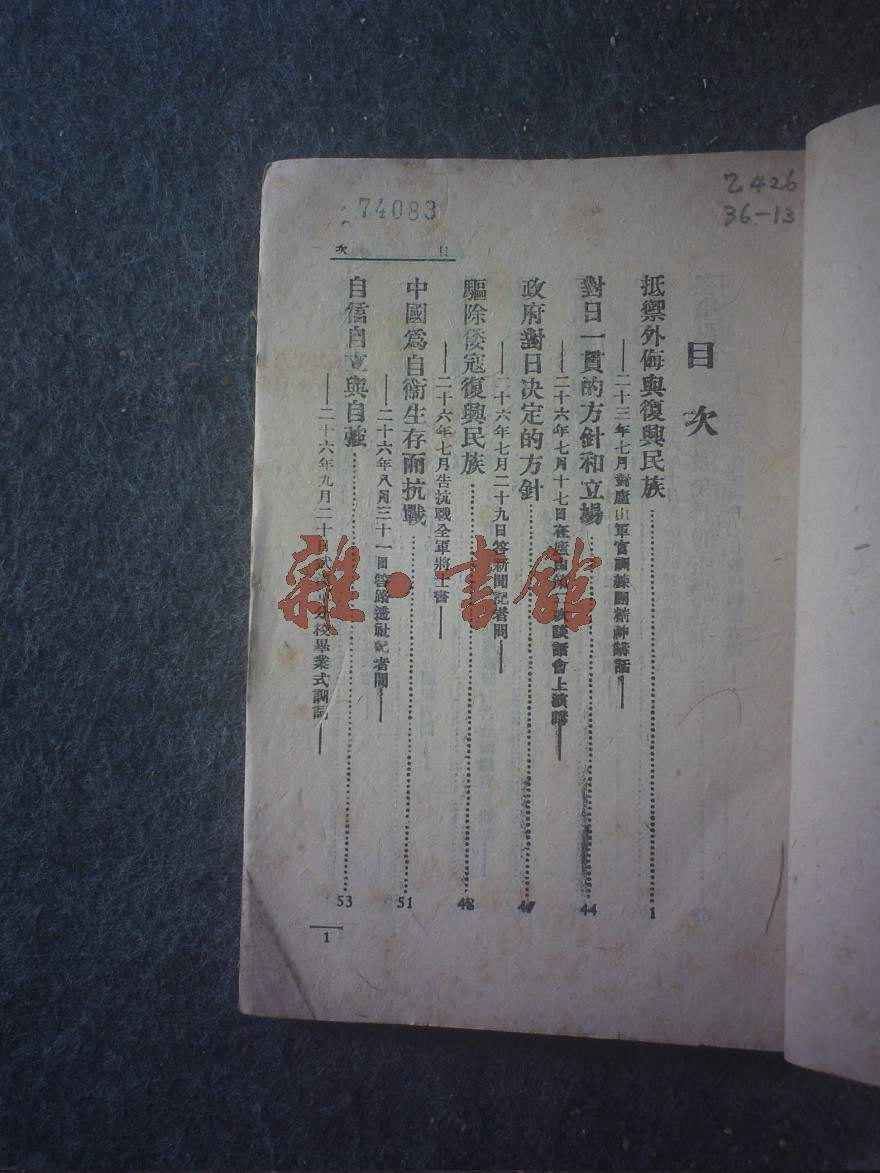 Z426
36-13
74083
目次
目次
抵禦外侮與復興民族 1
——二十三年七月對廬山軍官訓練團精神講話——
對日一貫的方針和立場 44
——二十六年七月十七日在廬山第一次談話會上演講——
政府對日決定的方針 47
——二十六年七月二十九日答新聞記者問——
驅除倭寇復興民族 48
——二十六年七月告抗戰全軍將士書——
中國為自衞生存而抗戰 51
——二十六年八月三十一日答路透社記者問——
自信自立與自強 53
——二十六年九月二十日 分校畢業式訓詞——
1
雜·書館